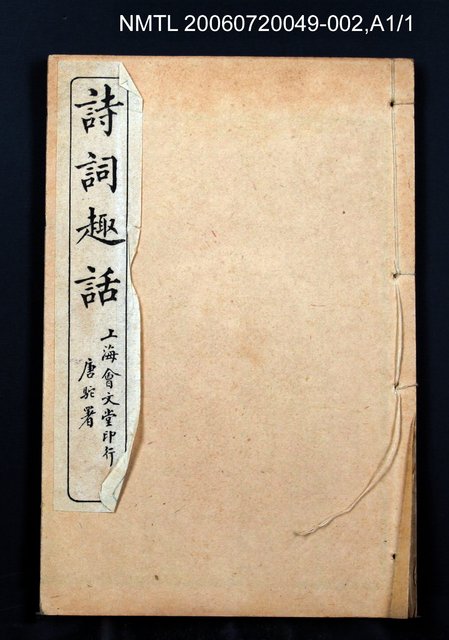 NMTL 20060720049-002,A1/1
詩詞趣話
上海會文堂印行
唐駝署